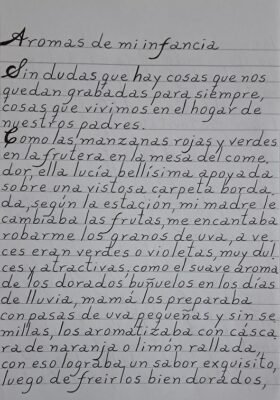 Aromas de mi infancia
Sin dudas, que hay cosas que nos
quedan grabadas para siempre,
cosas que vivimos en el hogar de
nuestros padres.
Como las manzanas rojas y verdes
en la frutera en la mesa del come
dor, ella lucía bellísima apoyada
sobre una vistosa carpeta borda
da, según la estación, mi madre le
cambiaba las frutas, me encantaba
robarme los granos de uva, a ve
ces eran verdes o violetas, muy dul
ces y atractivas, como el suave aroma
de los dorados buñuelos en los días
de lluvia, mamá los preparaba
con pasas de uva pequeñas y sin se
millas, los aromatizaba con cásca
ra de naranja o limón rallada,
con eso lograba, un sabor exquisito,
luego de freirlos bien dorados,